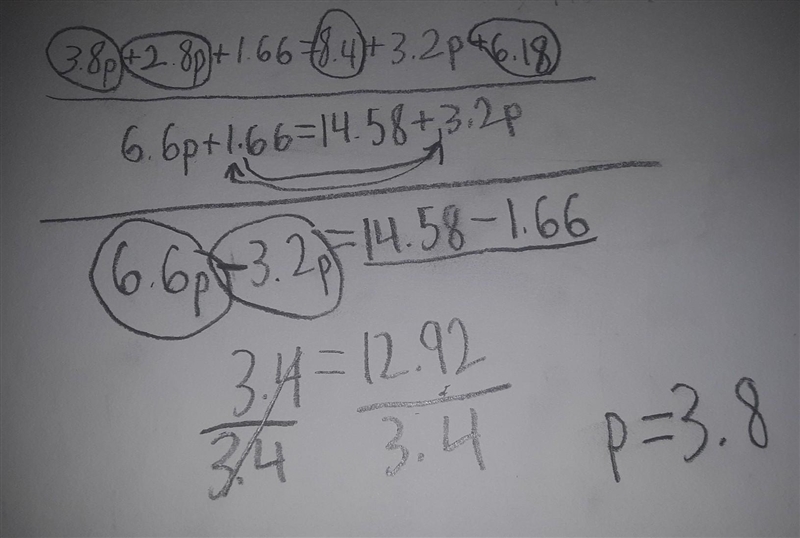 3.8p+2.8p+1.66=8.4+3.2p+6.18
6.6p+1.66=14.58+3.2p
6.6p-3.2p=14.58-1.66
3.4=12.92
3.4 3.4
p=3.8